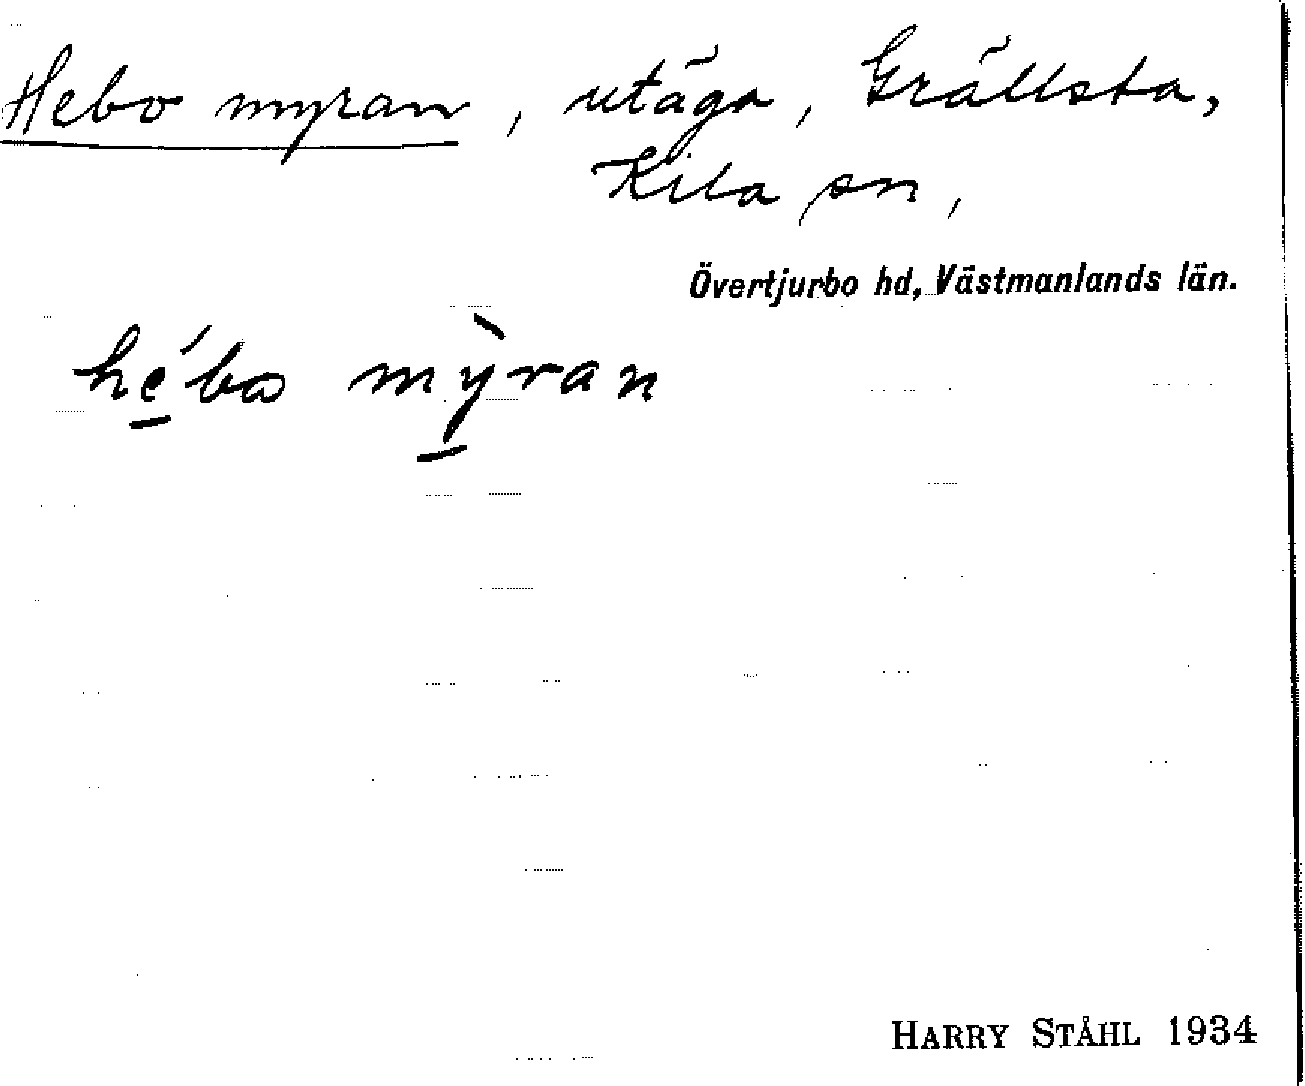 Hebo myran, utäga, Grällsta,
Kila sn,
Övertjurbo hd, Västmanlands län.
he̲´bo mỳ̲ran
HARRY STÅHL 1934